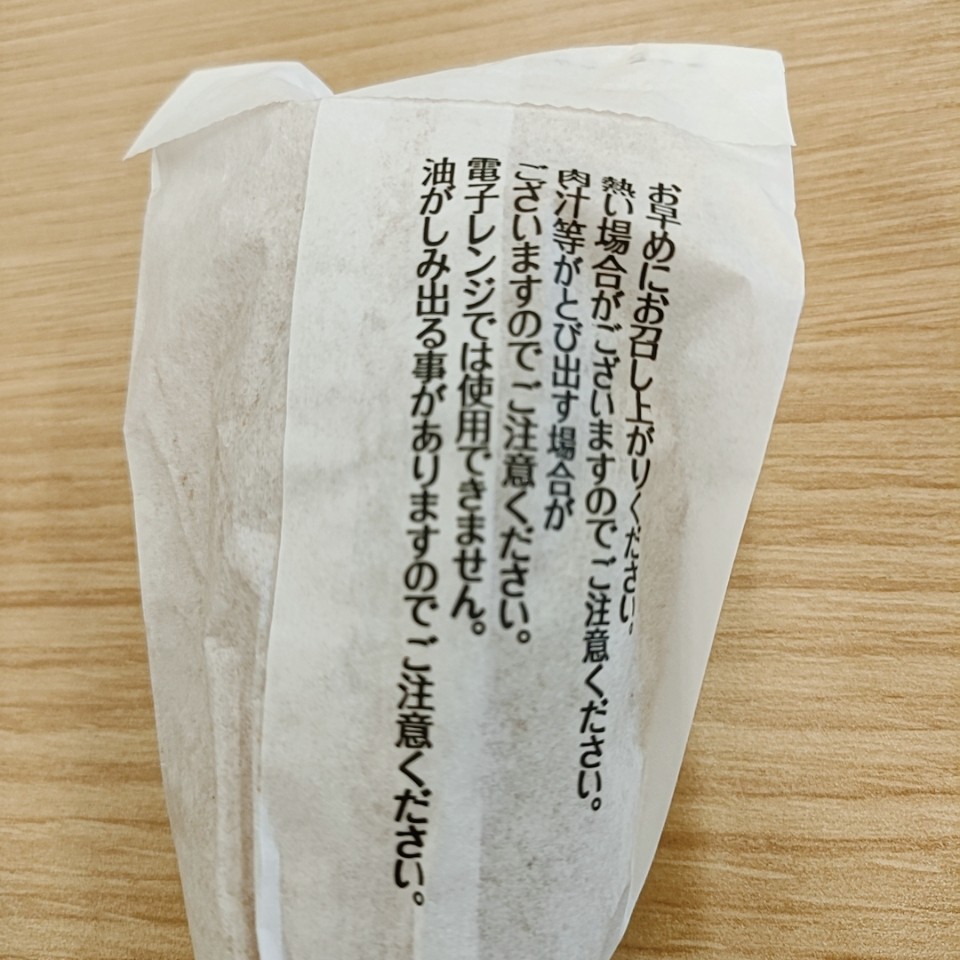 お早めにお召し上がりください。
熱い場合がございますのでご注意ください。
肉汁等がとび出す場合が
ございますのでご注意ください。
電子レンジでは使用できません。
油がしみ出る事がありますのでご注意ください。